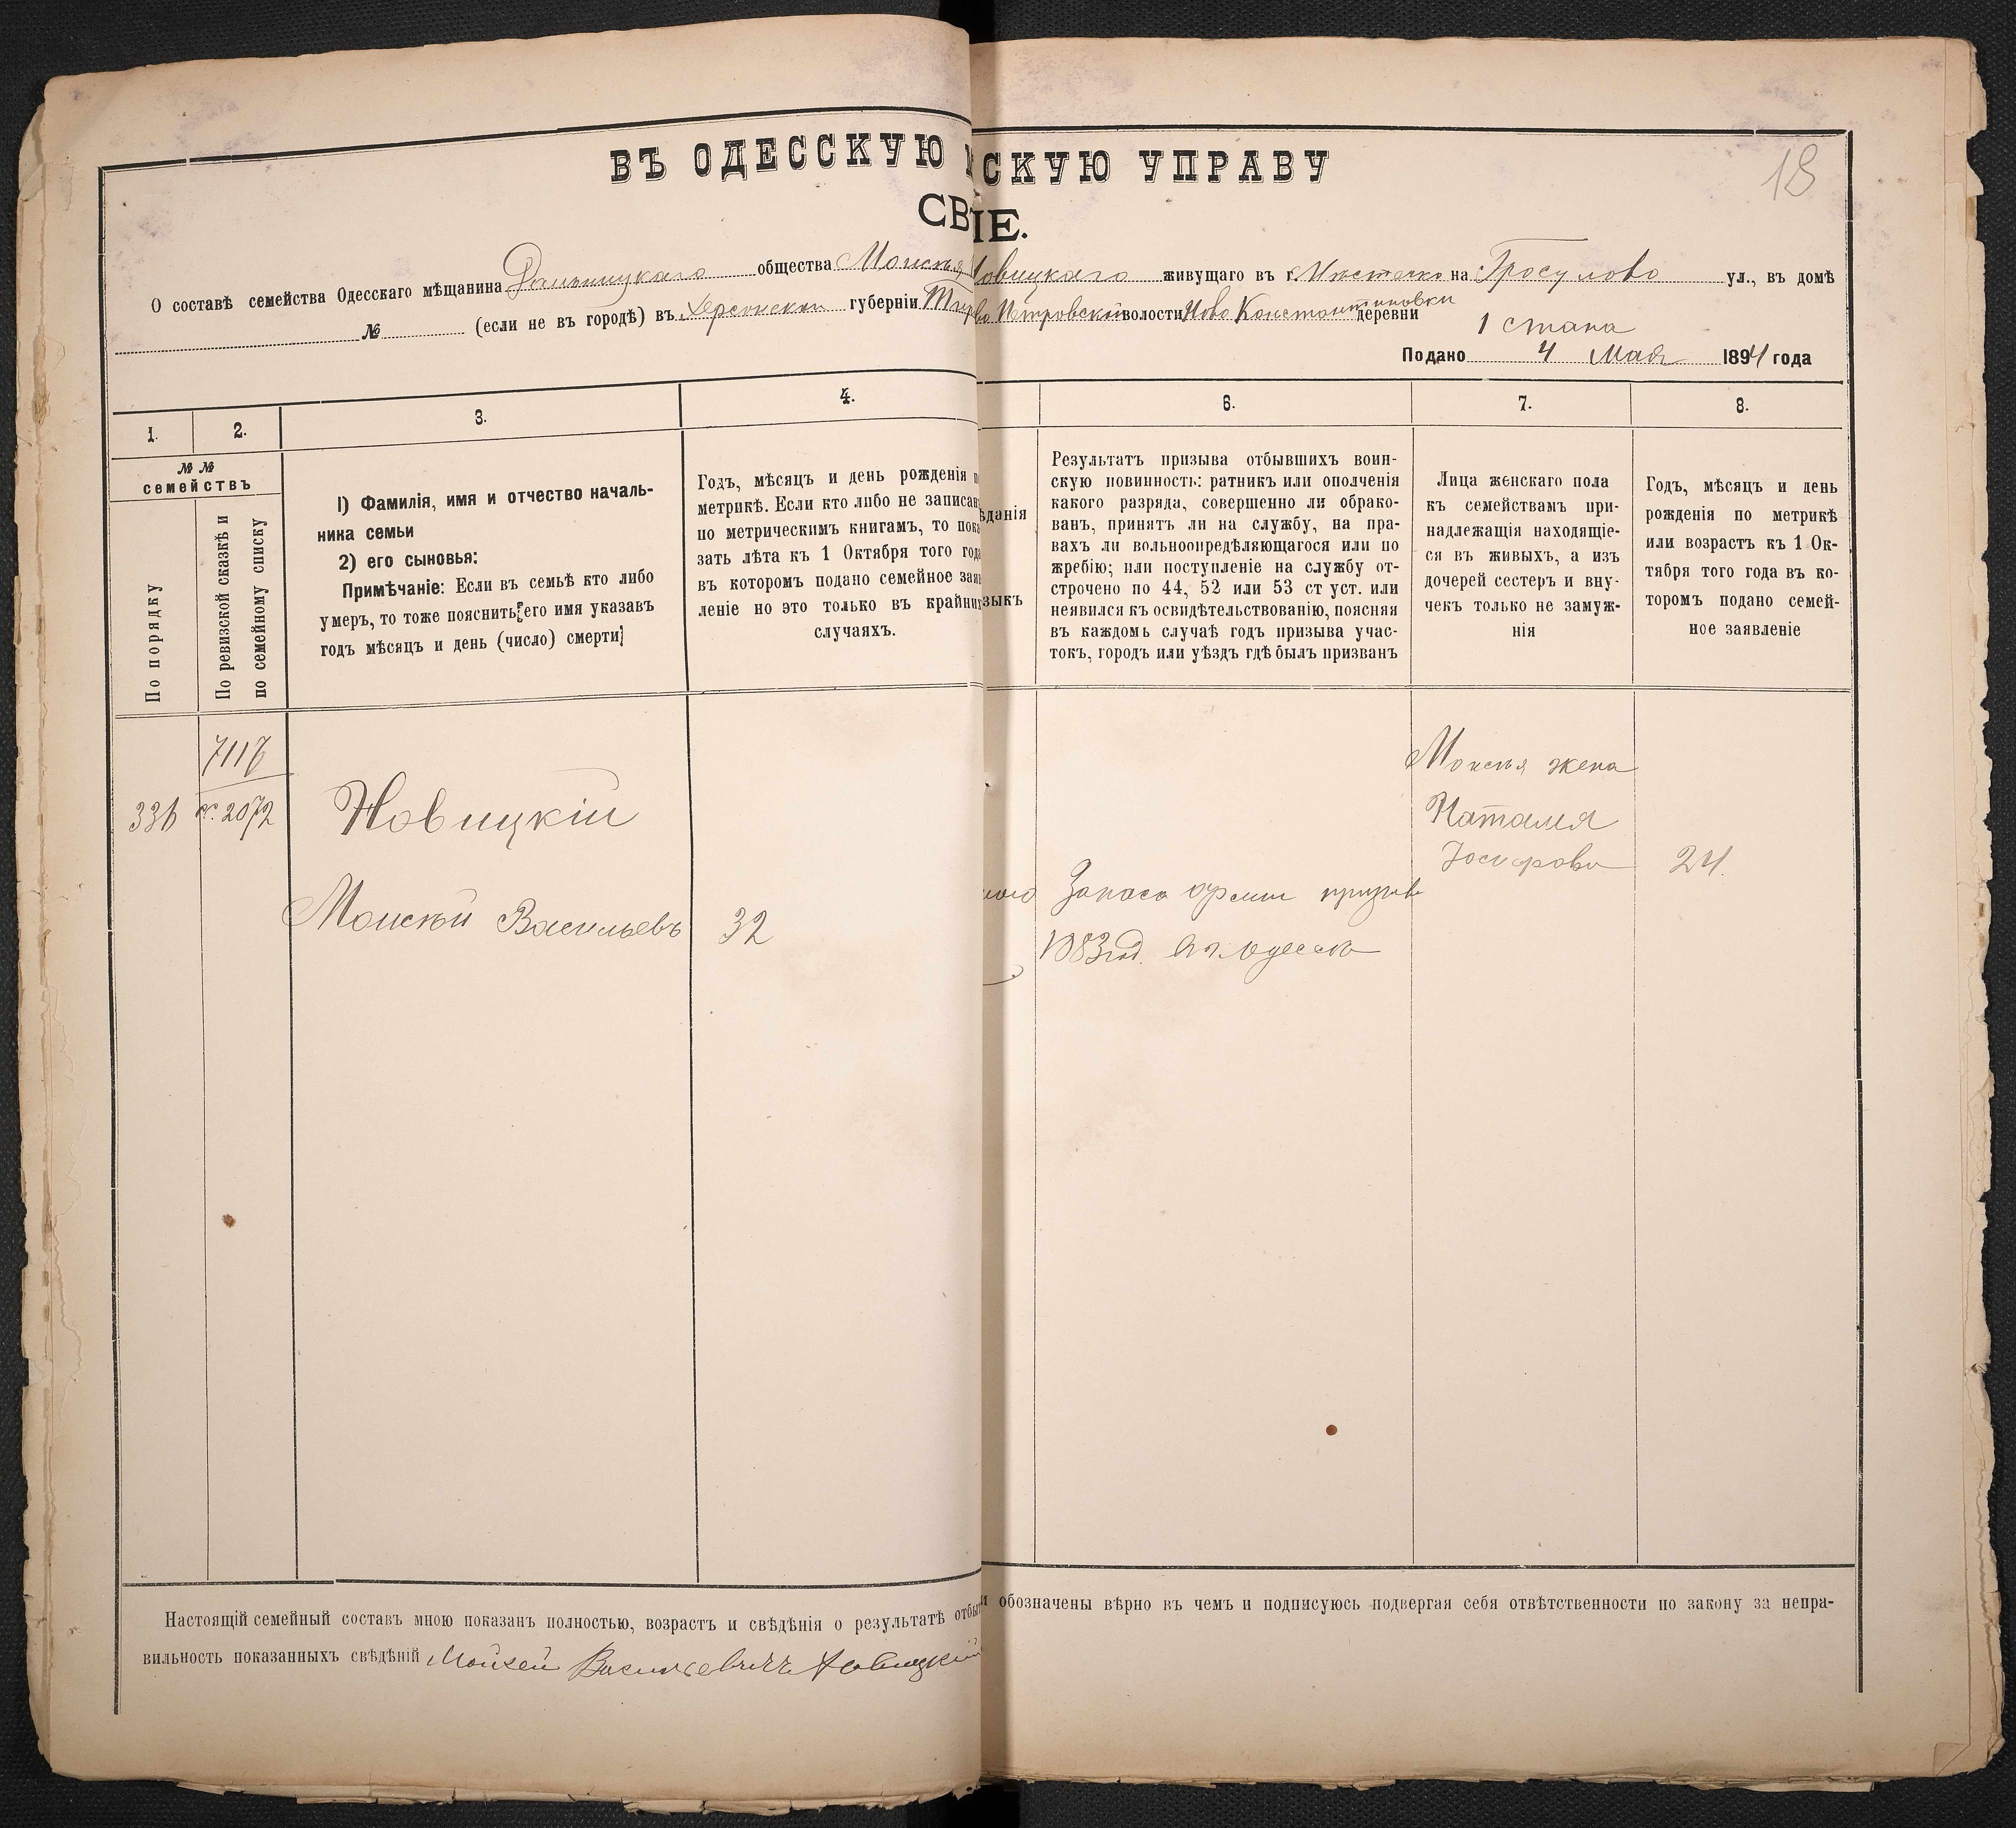 18
ВЪ ОДЕССКУЮ СКУЮ УПРАВУ
СВ ІЕ.
О составѣ семейства Одесскаго мѣщанина Дальницкаго общества Моисѣя Новицкаго живущаго въ г. Мѣстечко на Гросулово ул., въ домѣ
№ (если не въ городѣ) въ Херсонской губерніи Петровской волости Ново Константиновки деревни 1 стана
Подано 4 Мая 1894 года
1. 2. 3. 4. 6. 7. 8.
№ №
семействъ
По порядку
По ревизской сказкѣ и
по семейному списку
1) Фамилія, имя и отчество началь-
ника семьи
2) его сыновья:
Примѣчаніе: Если въ семьѣ кто либо
умеръ, то тоже пояснить его имя указавъ
годъ мѣсяцъ и день (число) смерти
Годъ, мѣсяцъ и день рожденія п
метрикѣ. Если кто либо не записан
по метрическимъ книгамъ, то пока
зать лѣта къ 1 Октября того год
въ котором подано семейное зая
леніе но это только въ крайних
случаяхъ.
ѣданія
зыкъ
Результатъ призыва отбывшихъ воин-
скую повинность: ратникъ или ополченія
какого разряда, совершенно ли обрако-
ванъ, принятъ ли на службу, на пра-
вахъ ли вольноопредѣляющагося или по
жребію; или поступленіе на службу от-
строчено по 44, 52 или 53 ст уст. или
неявился къ освидѣтельствованію, поясняя
въ каждомъ случаѣ годъ призыва учас-
токъ, городъ или уѣздъ гдѣ былъ призванъ
Лица женскаго пола
къ семействамъ при-
надлежащія находящіе-
ся въ живыхъ, а изъ
дочерей сестеръ и вну-
чекъ только не замуж-
нія
Годъ, мѣсяцъ и день
рожденія по метрикѣ
или возрастъ къ 1 Ок-
тября того года въ ко-
торомъ подано семей-
ное заявленіе
2072
Новицкій
Моисѣй Васильевъ 32
Запаса арміи призыв
1883 год. въ г. Одессѣ
Моисѣя жена
Наталія
Іосифова 24.
Настоящій семейный составъ мною показан полностью, возрастъ и свѣдѣнія о результатѣ отбы и обозначены вѣрно въ чемъ и подписуюсь подвергая себя отвѣтственности по закону за непра-
вильность показанныхъ свѣдѣній Мойсей Васильевичъ Новицкій